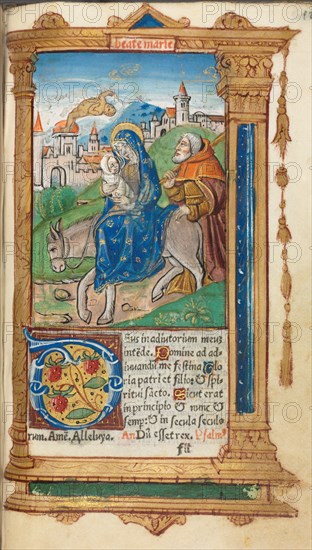 beate marie
eus in adiutorium meuz
intēde. Domine ad ad
iuuandū me festina Glo
ria patri et filio: & spi
ritui sācto. Sicut erat
in principio & nunc &
semp: & in secula seculo
rum. Amē. Alleluya. An Dū esset rex. Psalm⁹